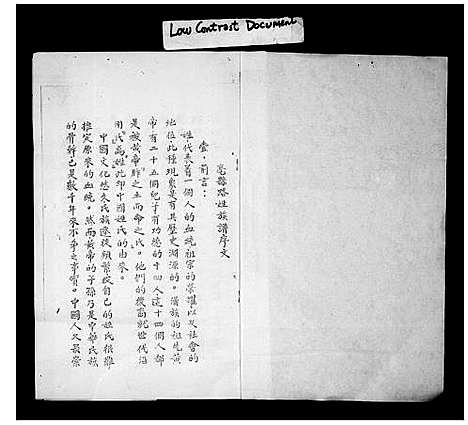 Low Contrast Document
亳縣路姓族譜序文
壹．前言：
姓代表着一個人的血統祖宗的榮耀以及社會的
地位此種現象是有其歷史淵源的。漢族的祖先黃
帝有二十五個兒子有功德的十四人這十四個人都
是被黃帝胙之土而命之氏。他們的後裔就世代沿
用氏為姓此即中國姓氏的由來。
中國文化悠久民族遷徙頻繁故自己的姓氏很難
推定原來的血統。然而黃帝的子孫乃是中華民族
的骨幹已是數千年來不爭之事實。中國人又最崇